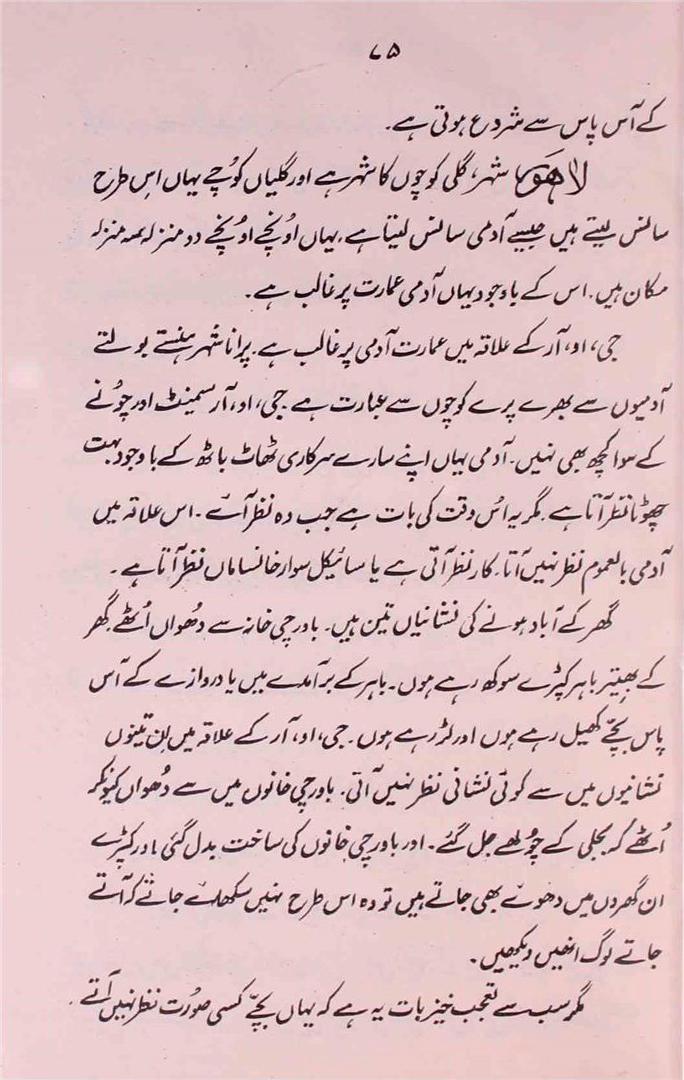 ۷۵
کے آس پاس سے شروع ہوتی ہے۔
لاہور شہر، گلی کوچوں کا شہر ہے اور گلیاں کوُچے یہاں اس طرح
سانس لیتے ہیں جیسے آدمی سانس لیتا ہے۔ یہاں اوُنچے اوُنچے دو منزلہ سہ منزلہ
مکان ہیں۔ اس کے باوجود یہاں آدمی عمارت پر غالب ہے۔
جی، او، آر کے علاقہ میں عمارت آدمی پر غالب ہے۔ پرانا شہر ہنستے بولتے
آدمیوں سے بھرے پرے کوچوں سے عبارت ہے۔ جی، او، آر سمینٹ اور چوُنے
کے سوا کچھ بھی نہیں۔ آدمی یہاں اپنے سارے سرکاری ٹھاٹ باٹھ کے باوجود بہت
چھوٹا نظر آتا ہے۔ مگر یہ اسُ وقت کی بات ہے جب وہ نظر آئے۔ اس علاقہ میں
آدمی بالعموم نظر نہیں آتا۔ کار نظر آتی ہے یا سائیکل سوار خانساماں نظر آتا ہے۔
گھر کے آباد ہونے کی نشانیاں تین ہیں۔ باورچی خانہ سے دھُواں اُٹھے۔ گھر
کے بھیتر باہر کپڑے سوکھ رہے ہوں۔ باہر کے برآمدے میں یا دروازے کے آس
پاس بچّے کھیل رہے ہوں اور لڑ رہے ہوں۔ جی، او، آر کے علاقہ میں اِن تینوں
نشانیوں میں سے کوئی نشانی نظر نہیں آتی۔ باورچی خانوں میں سے دُھواں کیونکر
اُٹھے کہ بجلی کے چوُلھے جل گئے۔ اور باورچی خانوں کی ساخت بدل گئی اور کپڑے
ان گھروں میں دھوئے بھی جاتے ہیں تو وہ اس طرح نہیں سکھلائے جاتے کہ آتے
جاتے لوگ انھیں دیکھیں۔
مگر سب سے تعجب خیز بات یہ ہے کہ یہاں بچّے کسی صوُرت نظر نہیں آتے۔